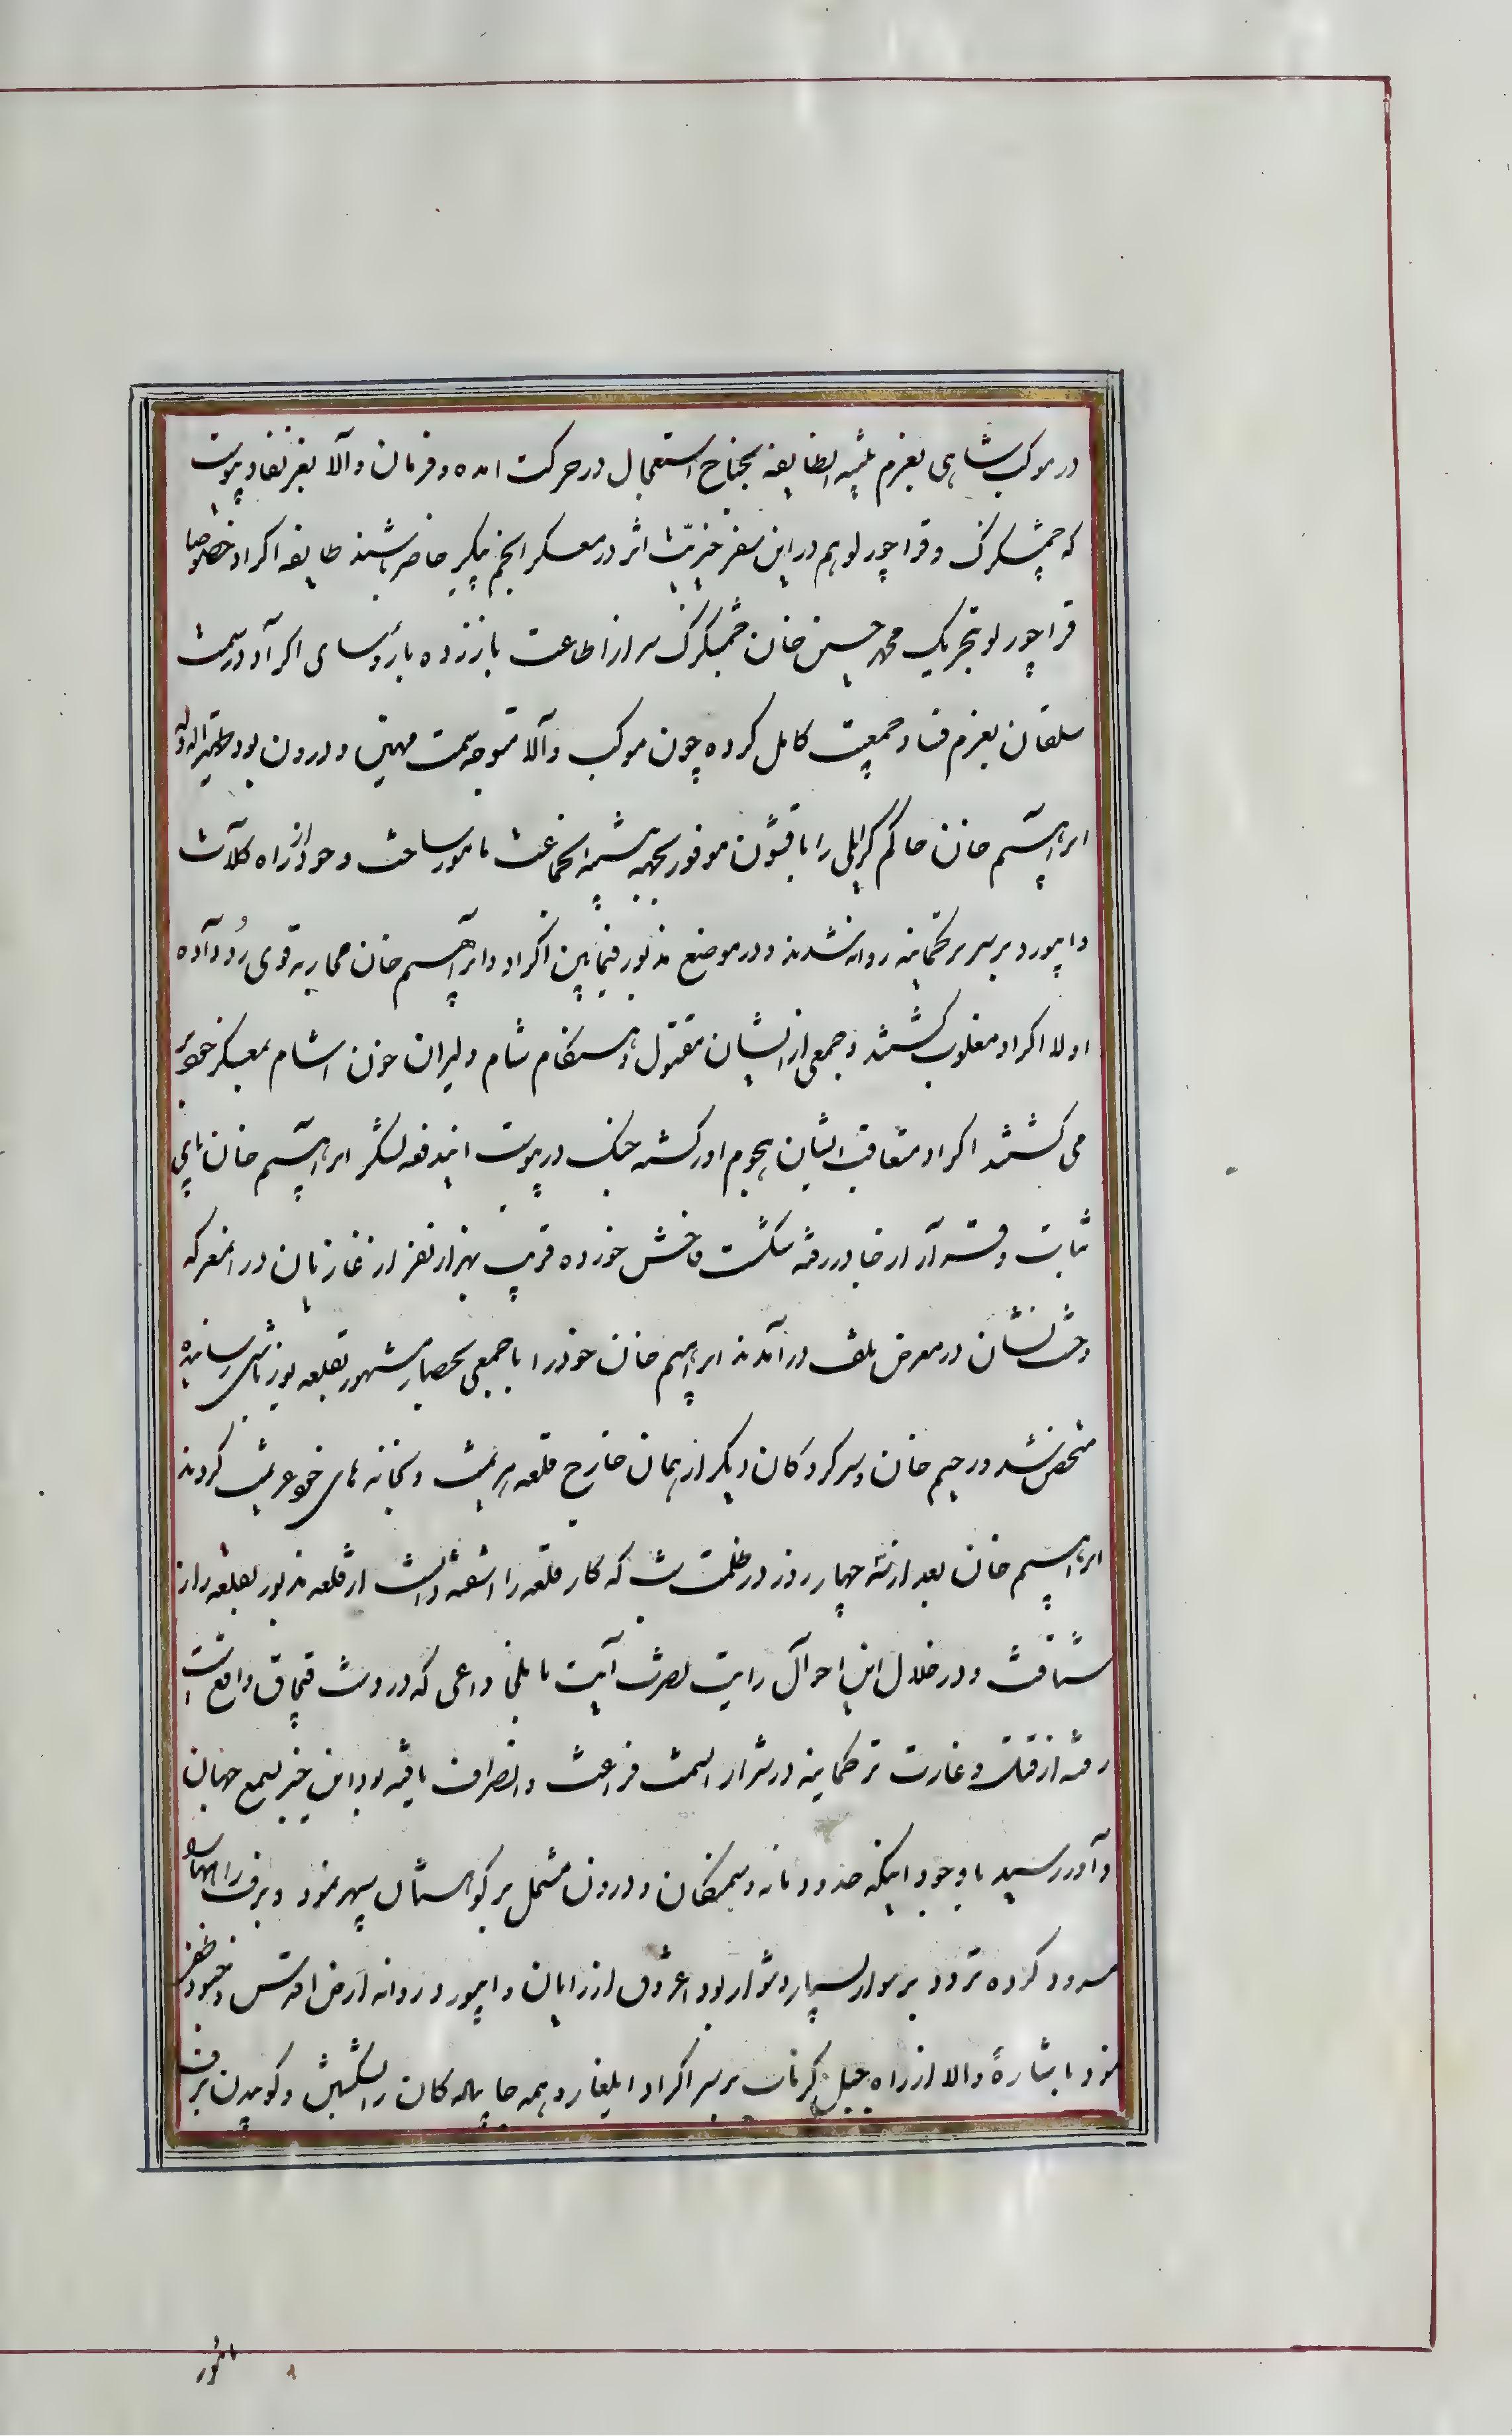 در موکب شاهی بعزم تنبیه انطایفه بجناح استعجال در حرکت امده و فرمان والا بعز نفاذ پیوست
که چمشکزک و قراچورلو هم در این سفر خیریت اثر در معسکر انجم پیکر حاضر باشند طایفه اکراد خصوصا
قراچورلو بتحریک محمد حسین خان چمشکزک سر از اطاعت باز زده با رؤسای اکراد در سمت
سلقان بعزم فساد جمعیت کامل کرده چون موکب والا متوجه سمت مهین و درون بود ظهیر الدوله
ابراهیم خان حاکم کرایلی را با قشون موفور بجهة تنبیه انجماعت مامور ساخت و خود از راه کلات
و ابیورد بر سر ترکمانیه روانه شدند و در موضع مذکور فیمابین اکراد و ابراهیم خان محاربه قوی رُو داده
اولا اکراد مغلوب کشتند و جمعی از ایشان مقتول و هنکام شام دلیران خون اشام بمعسکر خود بر
می کشتند اکراد متعاقب ایشان هجوم اور کشته جنک در پیوست ایندفعه لشکر ابراهیم خان را پای
ثبات و قرار از جا در رفته شکست فاحش خورده قریب بهزار نفر از غازیان در انمعرکه
وحشت نشان در معرض تلف در آمدند ابراهیم خان خود را با جمعی بحصار مشهور بقلعه یوزباشی رسانیده
متحصن شد و رحیم خان و سرکردکان دیکر از همان خارج قلعه هزیمت و بخانه های خود عزیمت کردند
ابراهیم خان بعد از سه چهار روز در ظلمت شب که کار قلعه را اشفته دانست از قلعه مذبور بقلعه راز
شتافت و در خلال این احوال رایت نصرت آیت تا بلخان داعی که در دشت قپچاق واقع است
رفته از قتل و غارت ترکمانیه در شرار انسمت فراغت و انصراف یافته بود این خبر بسمع جهان
داور رسید با وجود اینکه حدود مانه و سمکان و درون مشتمل بر کوهستان سپهر نمود و برف راهها را
مسدود کرده تردد بر سوار بسیار دشوار بود اغروق از رایان و ابیورد روانه ارض اقدس و جنود ظفر
نمود باشارهٔ والا از راه جبل کرماب بر سر اکراد ایلغار و همه جا پیاده کان را بشکستن و کوبیدن برف
مامور